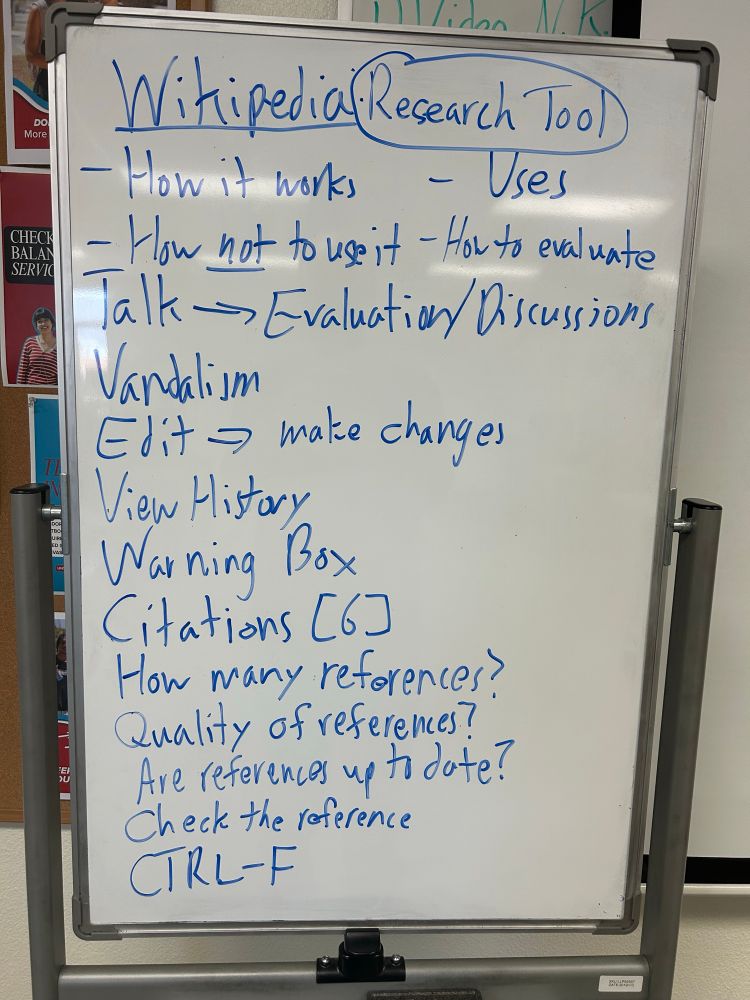 1) Video N.K.
Wikipedia: Research Tool
- How it works - Uses
- How not to use it - How to evaluate
Talk → Evaluation/Discussions
Vandalism
Edit ⇒ make changes
View History
Warning Box
Citations [6]
How many references?
Quality of references?
Are references up to date?
Check the reference
CTRL-F
DO
More
CHECK
BALAN
SERVIC